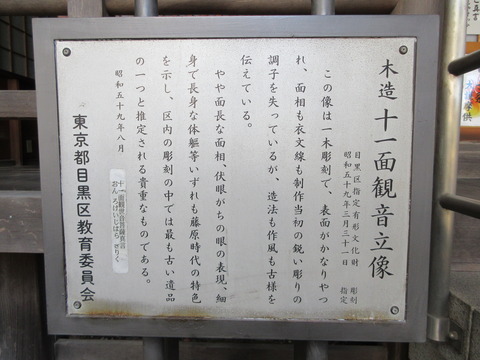 木造 十一面観音立像
目黒区指定有形文化財 彫刻
昭和五十九年三月三十一日 指定
この像は一木彫刻で、表面がかなりやつ
れ、面相も衣文線も制作当初の鋭い彫りの
調子を失っているが、造法も作風も古様を
伝えている。
やや面長な面相、伏眼がちの眼の表現、細
身で長身な体軀等いずれも藤原時代の特色
を示し、区内の彫刻の中では最も古い遺品
の一つと推定される貴重なものである。
昭和五十九年八月
東京都目黒区教育委員会